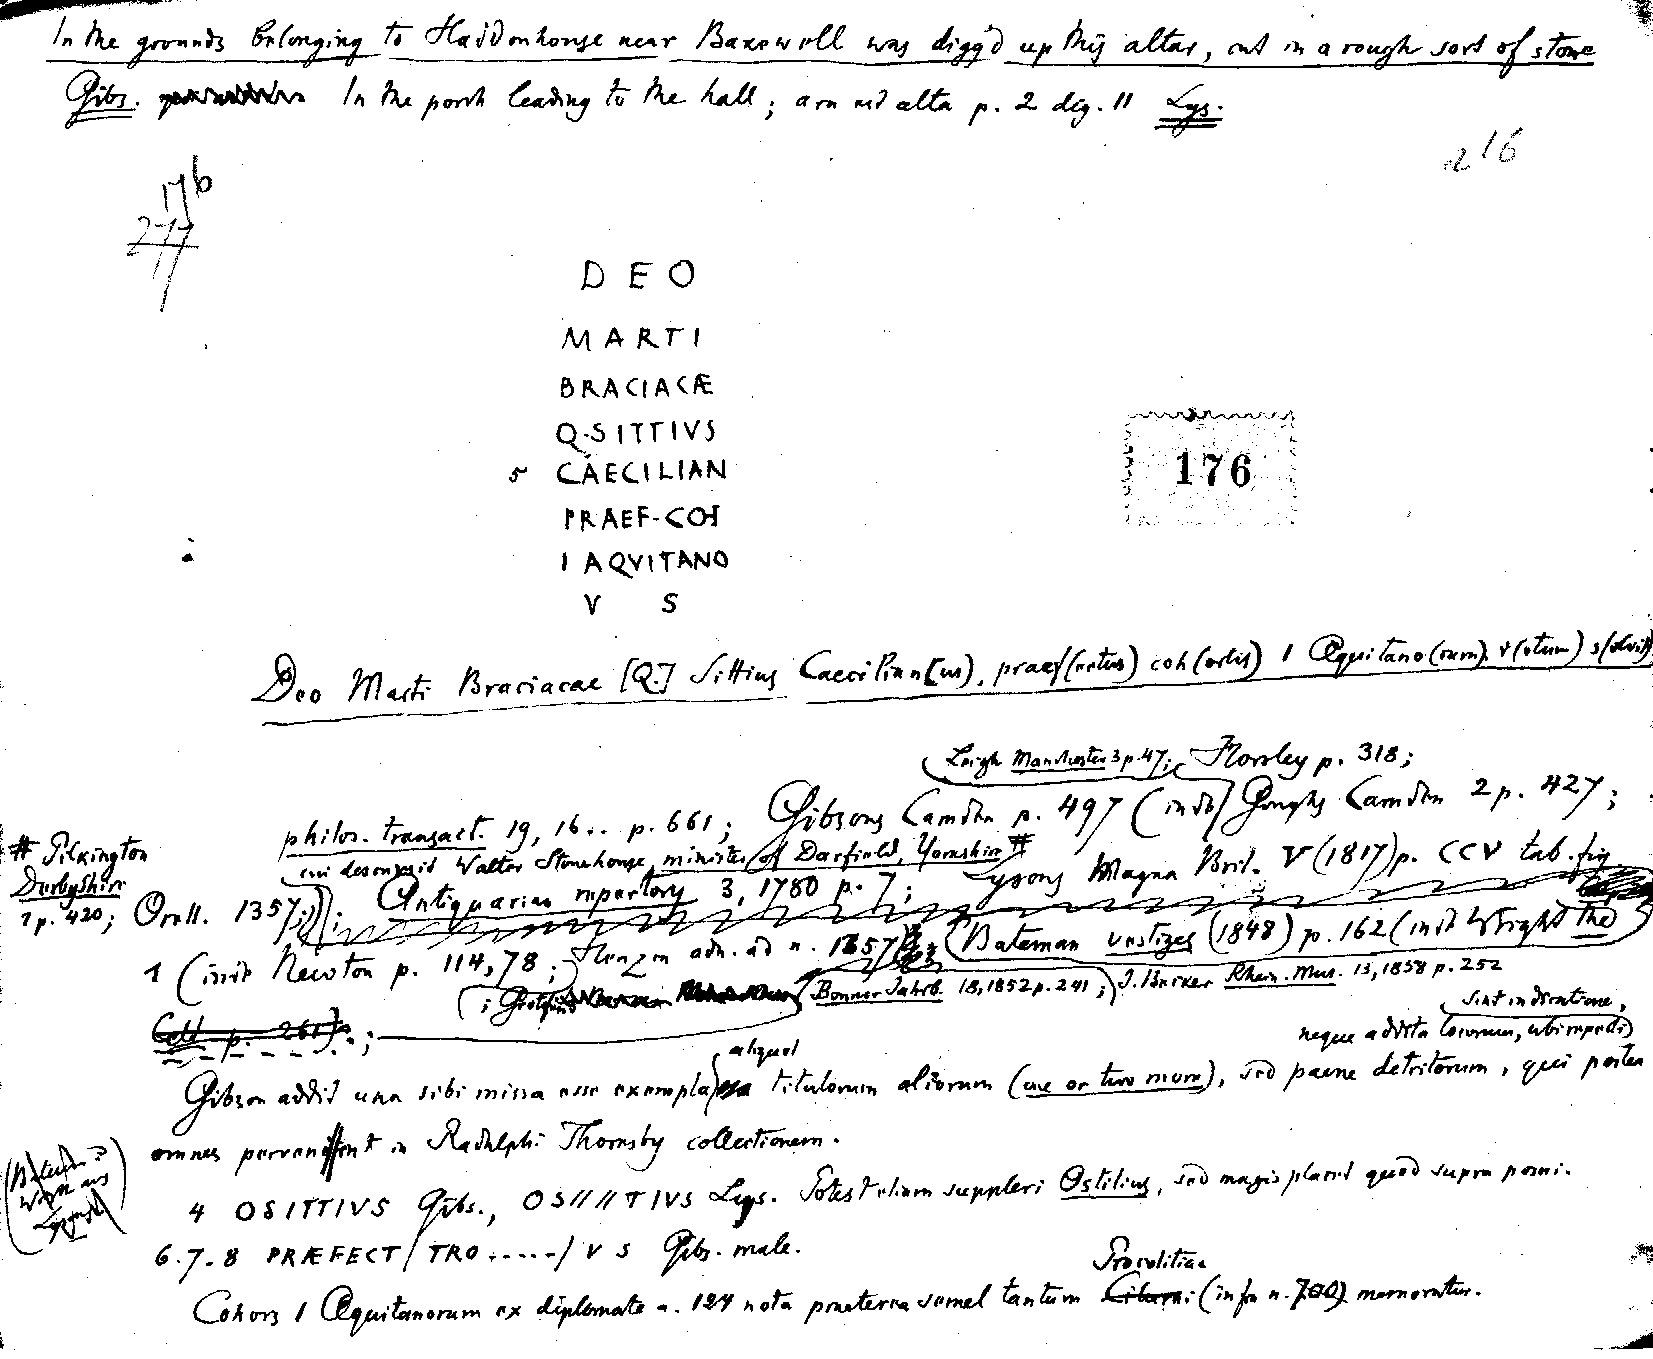 In the grounds belonging to Haddonhouse near Bakewell was digg'd up this altar, cut in a rough sort of stone
Gibs. In the porch leading to the hall; ara alta p. 2 dig. 11 Lys.
216
176
277
DEO
MARTI
BRACIACÆ
Q·SITTIVS
5 CAECILIAN
PRAEF·COH
I AQVITANO
V S
176
Deo Marti Braciacae [Q.] Sittius Caecilian[us], praef(ectus) coh(ortis) I Aquitano(rum) v(otum) s(olvit)
Leigh Manchester 3 p. 47; Horsley p. 318;
philos. transact. 19, 16.. p. 661; Gibsons Camden p. 497 (inde) Goughs Camden 2 p. 427;
# Pilkington
Derbyshire
1 p. 420;
cui descripsit Walter Stonehouse, minister of Darfield, Yorkshire #
Orell. 1357; Antiquarian repertory 3, 1780 p. 7; Lysons Magna Brit. V (1817) p. CCV tab. fig.
1 (inde Newton p. 114, 78; Henzen adn. ad n. 1357 (Bateman vestiges (1848) p. 162 (inde Wright the
Bonner Jahrb. 18, 1852 p. 241; J. Becker Rhein. Mus. 13, 1858 p. 252
Celt p. 261);
sint indicatione,
neque addita locorum, ubi reperti
aliquot
Gibson addit una sibi missa esse exempla titulorum aliorum (one or two more), sed paene detritorum, qui postea
omnes pervenerunt in Radulphi Thoresby collectionem.
4 OSITTIVS Gibs., OSIIITIVS Lys. Potest etiam suppleri Ostitius, sed magis placet quod supra posui.
6.7.8 PRÆFECT / TRO...../ V S Gibs. male.
Procolitiae
Cohors I Aquitanorum ex diplomate a. 124 nota praeterea semel tantum (infra n. 700) memoratur.